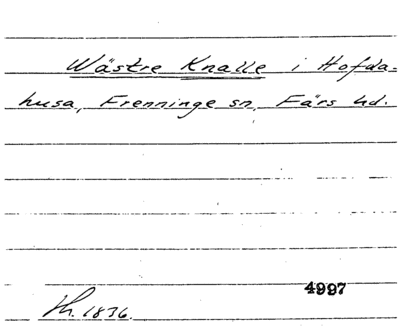 Wästre Knalle i Hofda-
husa, Frenninge sn, Färs hd.
4997
Th. 1836.